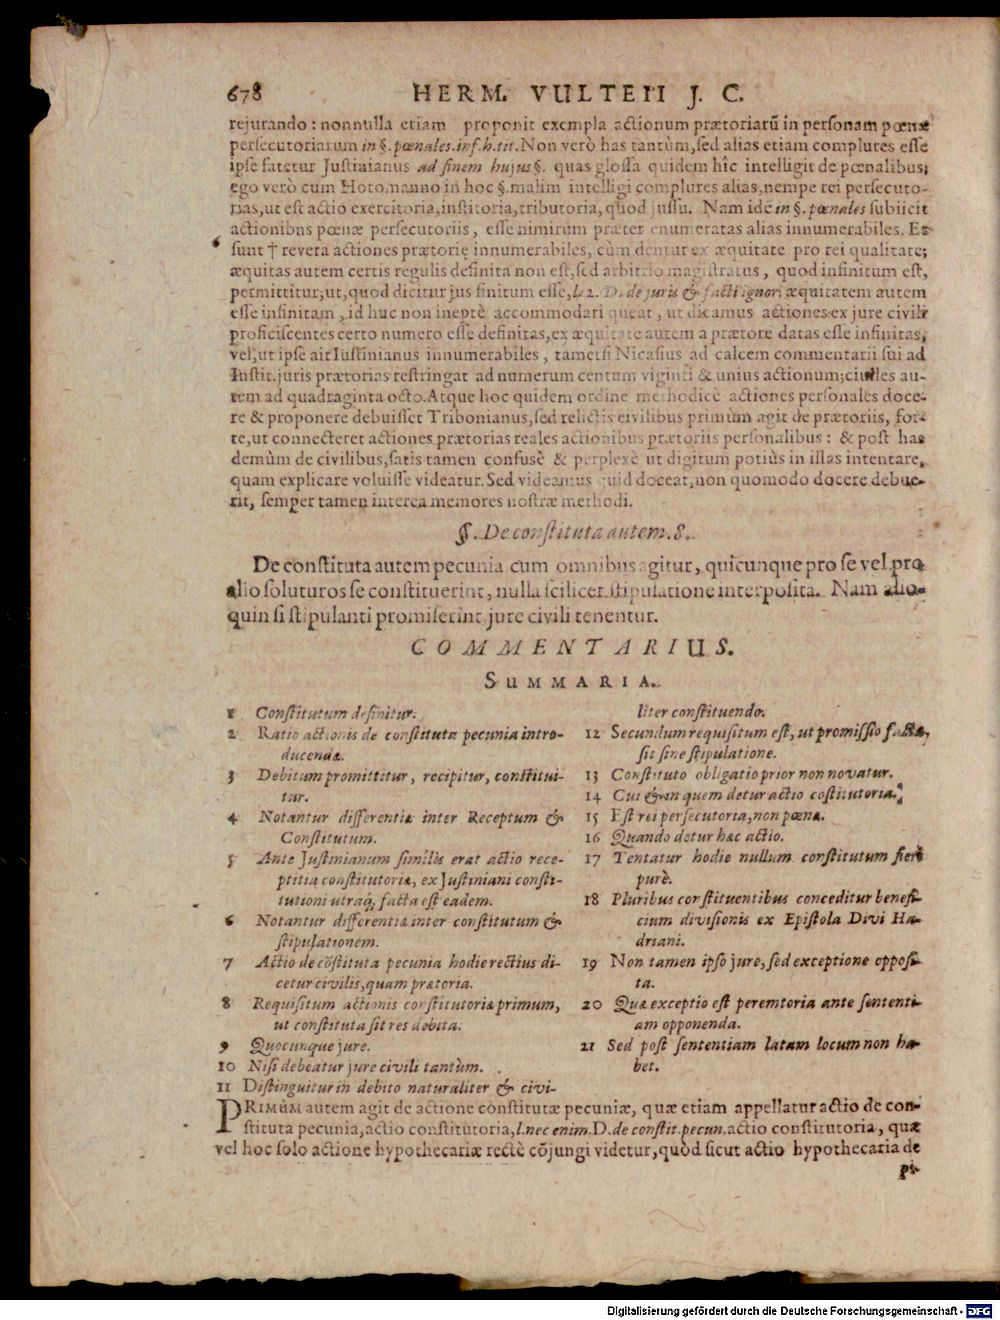 678 HERM. VULTEII J. C.
rejurando: nonnulla etiam proponit exempla actionum prætoriarū in personam pœnæ
persecutoriarum in §. pœnales. inf. h. tit. Non verò has tantùm, sed alias etiam complures esse
ipse fatetur Justinianus ad finem hujus §. quas glossa quidem hîc intelligit de pœnalibus;
ego verò cum Hotomanno in hoc §. malim intelligi complures alias, nempe rei persecuto-
rias, ut est actio exercitoria, institoria, tributoria, quod jussu. Nam idē in §. pœnales subiicit
actionibus pœnæ persecutoriis, esse nimirùm præter enumeratas alias innumerabiles. Et
6 sunt † revera actiones prætorię innumerabiles, cùm dentur ex æquitate pro rei qualitate;
æquitas autem certis regulis definita non est, sed arbitrio magistratus, quod infinitum est,
permittitur, ut, quod dicitur jus finitum esse, l. 2. D. de juris & facti ignor. æquitatem autem
esse infinitam, id huc non ineptè accommodari queat, ut dicamus actiones ex jure civili
proficiscentes certo numero esse definitas, ex æquitate autem a prætore datas esse infinitas,
vel, ut ipse ait Iustinianus innumerabiles, tametsi Nicasius ad calcem commentarii sui ad
Instit. juris prætorias restringat ad numerum centum viginti & unius actionum; civiles au-
tem ad quadraginta octo. Atque hoc quidem ordine methodicè actiones personales doce-
re & proponere debuisset Tribonianus, sed relictis civilibus primùm agit de prætoriis, for-
te, ut connecteret actiones prætorias reales actionibus prætoriis personalibus: & post has
demùm de civilibus, satis tamen confusè & perplexè ut digitum potiùs in illas intentare,
quam explicare voluisse videatur. Sed videamus quid doceat, non quomodo docere debue-
rit, semper tamen interea memores nostræ methodi.
§. De constituta autem. 8.
De constituta autem pecunia cum omnibus agitur, quicunque pro se vel pro
alio soluturos se constituerint, nulla scilicet stipulatione interposita. Nam alio-
quin si stipulanti promiserint jure civili tenentur.
COMMENTARIUS.
SUMMARIA.
1 Constitutum definitur.
2 Ratio actionis de constituta pecunia intro-
ducendæ.
3 Debitum promittitur, recipitur, constitui-
tur.
4 Notantur differentiæ inter Receptum &
Constitutum.
5 Ante Justinianum similis erat actio rece-
ptitia constitutoriæ, ex Justiniani consti-
tutioni utraq; facta est eadem.
6 Notantur differentiæ inter constitutum &
stipulationem.
7 Actio de cōstituta pecunia hodie rectius di-
cetur civilis, quam prætoria.
8 Requisitum actionis constitutoriæ primum,
ut constituta sit res debita.
9 Quocunque jure.
10 Nisi debeatur jure civili tantùm.
11 Distinguitur in debito naturaliter & civi-
liter constituendo.
12 Secundum requisitum est, ut promissio facta,
sit sine stipulatione.
13 Constituto obligatio prior non novatur.
14 Cui & in quem detur actio cōstitutoria.
15 Est rei persecutoria, non pœnæ.
16 Quando detur hæc actio.
17 Tentatur hodie nullum constitutum fieri
purè.
18 Pluribus constituentibus conceditur benefi-
cium divisionis ex Epistola Divi Ha-
driani.
19 Non tamen ipso jure, sed exceptione opposi-
ta.
20 Quæ exceptio est peremtoria ante sententi-
am opponenda.
21 Sed post sententiam latam locum non ha-
bet.
PRIMùM autem agit de actione constitutæ pecuniæ, quæ etiam appellatur actio de con-
stituta pecunia, actio constitutoria, l. nec enim. D. de constit. pecun. actio constitutoria, quæ
vel hoc solo actione hypothecariæ rectè cōjungi videtur, quòd sicut actio hypothecaria de
pi-
Digitalisierung gefördert durch die Deutsche Forschungsgemeinschaft - DFG